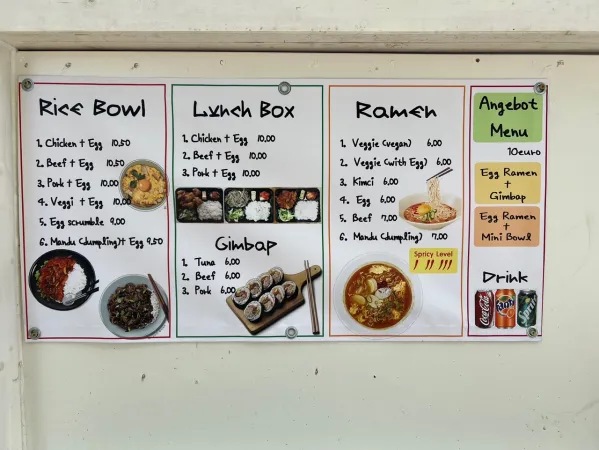 Rice Bowl
1. Chicken + Egg 10,50
2. Beef + Egg 10,50
3. Pork + Egg 10,00
4. Veggi + Egg 10,00
5. Egg scrumble 9,00
6. Mandu (dumpling)+ Egg 9,50
Lunch Box
1. Chicken + Egg 10,00
2. Beef + Egg 10,00
3. Pork + Egg 10,00
Gimbap
1. Tuna 6,00
2. Beef 6,00
3. Pork 6,00
Ramen
1. Veggie (vegan) 6,00
2. Veggie (with Egg) 6,00
3. Kimci 6,00
4. Egg 6,00
5. Beef 7,00
6. Mandu (dumpling) 7,00
Spicy Level
Angebot
Menu
10euro
Egg Ramen
+
Gimbap
Egg Ramen
+
Mini Bowl
Drink
Coca-Cola
Fanta
Sprite